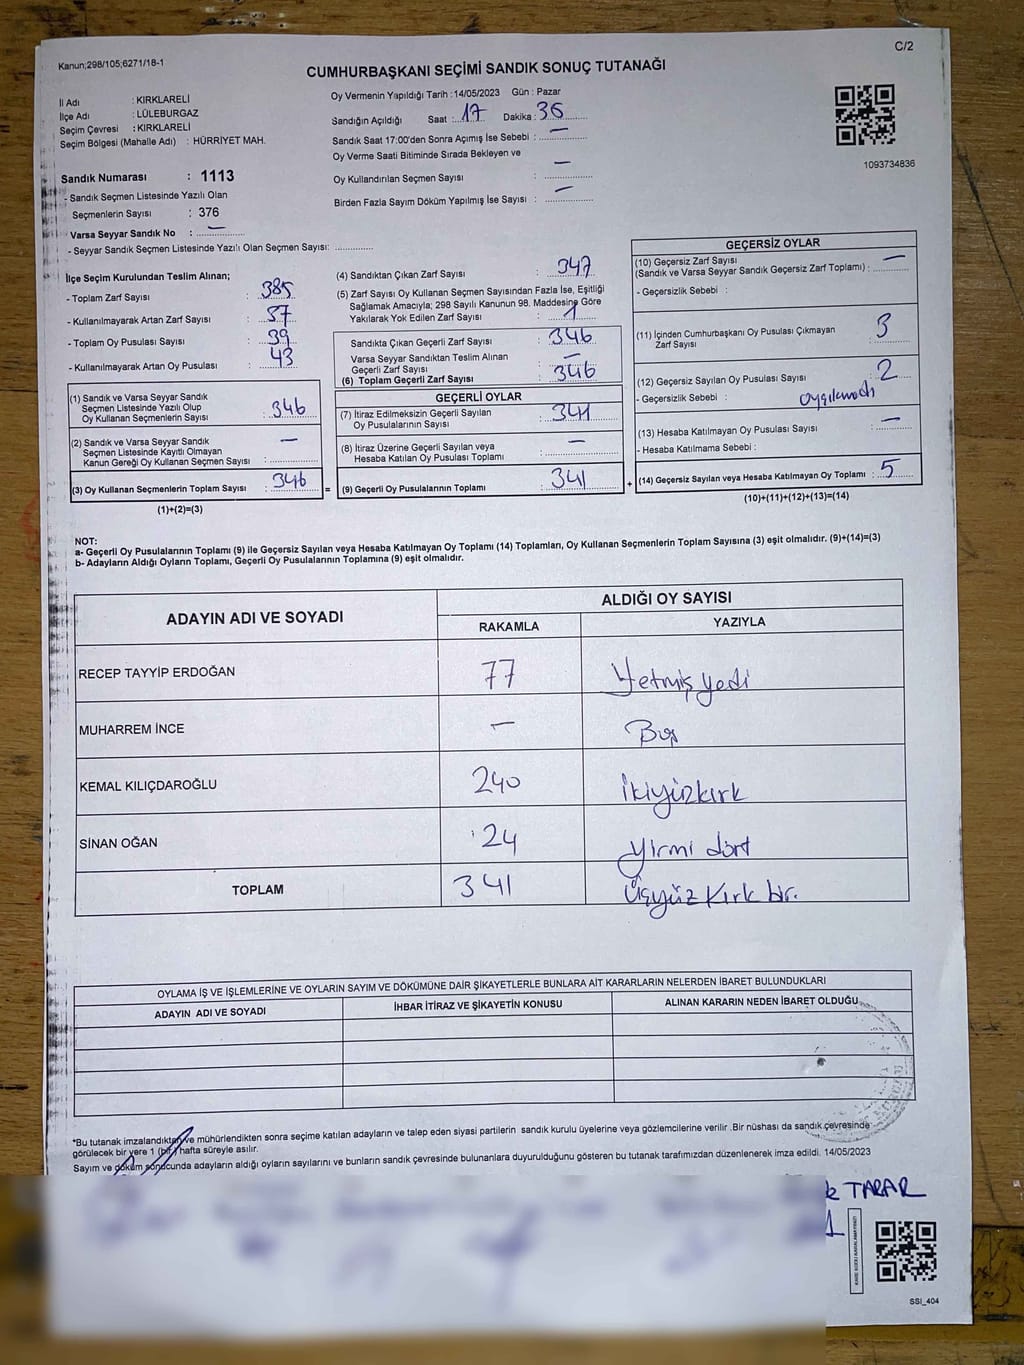 C/2
Kanun;298/105;6271/18-1
CUMHURBAŞKANI SEÇİMİ SANDIK SONUÇ TUTANAĞI
İl Adı : KIRKLARELİ
İlçe Adı : LÜLEBURGAZ
Seçim Çevresi : KIRKLARELİ
Seçim Bölgesi (Mahalle Adı) : HÜRRİYET MAH.
Sandık Numarası : 1113
- Sandık Seçmen Listesinde Yazılı Olan
Seçmenlerin Sayısı : 376
Varsa Seyyar Sandık No : —
- Seyyar Sandık Seçmen Listesinde Yazılı Olan Seçmen Sayısı: ............
Oy Vermenin Yapıldığı Tarih : 14/05/2023 Gün : Pazar
Sandığın Açıldığı Saat : 17 Dakika : 36
Sandık Saat 17:00'den Sonra Açımış İse Sebebi : —
Oy Verme Saati Bitiminde Sırada Bekleyen ve
Oy Kullandırılan Seçmen Sayısı : —
Birden Fazla Sayım Döküm Yapılmış İse Sayısı : —
1093734836
İlçe Seçim Kurulundan Teslim Alınan;
- Toplam Zarf Sayısı : 385
- Kullanılmayarak Artan Zarf Sayısı : 37
- Toplam Oy Pusulası Sayısı : 39
- Kullanılmayarak Artan Oy Pusulası : 43
(1) Sandık ve Varsa Seyyar Sandık
Seçmen Listesinde Yazılı Olup
Oy Kullanan Seçmenlerin Sayısı : 346
(2) Sandık ve Varsa Seyyar Sandık
Seçmen Listesinde Kayıtlı Olmayan
Kanun Gereği Oy Kullanan Seçmen Sayısı : —
(3) Oy Kullanan Seçmenlerin Toplam Sayısı : 346
(1)+(2)=(3)
(4) Sandıktan Çıkan Zarf Sayısı : 347
(5) Zarf Sayısı Oy Kullanan Seçmen Sayısından Fazla İse, Eşitliği
Sağlamak Amacıyla; 298 Sayılı Kanunun 98. Maddesine Göre
Yakılarak Yok Edilen Zarf Sayısı : 1
Sandıkta Çıkan Geçerli Zarf Sayısı : 346
Varsa Seyyar Sandıktan Teslim Alınan
Geçerli Zarf Sayısı : —
(6) Toplam Geçerli Zarf Sayısı : 346
GEÇERLİ OYLAR
(7) İtiraz Edilmeksizin Geçerli Sayılan
Oy Pusulalarının Sayısı : 341
(8) İtiraz Üzerine Geçerli Sayılan veya
Hesaba Katılan Oy Pusulası Toplamı : —
= (9) Geçerli Oy Pusulalarının Toplamı : 341
GEÇERSİZ OYLAR
(10) Geçersiz Zarf Sayısı
(Sandık ve Varsa Seyyar Sandık Geçersiz Zarf Toplamı) : —
- Geçersizlik Sebebi :
(11) İçinden Cumhurbaşkanı Oy Pusulası Çıkmayan
Zarf Sayısı : 3
(12) Geçersiz Sayılan Oy Pusulası Sayısı : 2
- Geçersizlik Sebebi :
(13) Hesaba Katılmayan Oy Pusulası Sayısı : —
- Hesaba Katılmama Sebebi :
+ (14) Geçersiz Sayılan veya Hesaba Katılmayan Oy Toplamı : 5
(10)+(11)+(12)+(13)=(14)
NOT:
a- Geçerli Oy Pusulalarının Toplamı (9) ile Geçersiz Sayılan veya Hesaba Katılmayan Oy Toplamı (14) Toplamları, Oy Kullanan Seçmenlerin Toplam Sayısına (3) eşit olmalıdır. (9)+(14)=(3)
b- Adayların Aldığı Oyların Toplamı, Geçerli Oy Pusulalarının Toplamına (9) eşit olmalıdır.
ADAYIN ADI VE SOYADI
ALDIĞI OY SAYISI
RAKAMLA YAZIYLA
RECEP TAYYİP ERDOĞAN 77 Yetmiş yedi
MUHARREM İNCE — Boş
KEMAL KILIÇDAROĞLU 240 İkiyüzkırk
SİNAN OĞAN 24 yirmi dört
TOPLAM 341 Üçyüz Kırk bir.
OYLAMA İŞ VE İŞLEMLERİNE VE OYLARIN SAYIM VE DÖKÜMÜNE DAİR ŞİKAYETLERLE BUNLARA AİT KARARLARIN NELERDEN İBARET BULUNDUKLARI
ADAYIN ADI VE SOYADI İHBAR İTİRAZ VE ŞİKAYETİN KONUSU ALINAN KARARIN NEDEN İBARET OLDUĞU
*Bu tutanak imzalandıktan ve mühürlendikten sonra seçime katılan adayların ve talep eden siyasi partilerin sandık kurulu üyelerine veya gözlemcilerine verilir .Bir nüshası da sandık çevresinde
görülecek bir yere 1 (bir) hafta süreyle asılır.
Sayım ve döküm sonucunda adayların aldığı oyların sayılarını ve bunların sandık çevresinde bulunanlara duyurulduğunu gösteren bu tutanak tarafımızdan düzenlenerek imza edildi. 14/05/2023
TARAR
SSI_404